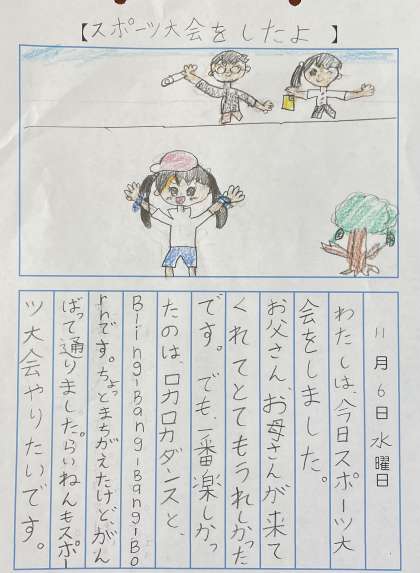 【スポーツ大会をしたよ 】
11月6日水曜日
わたしは、今日スポーツ大
会をしました。
お父さん、お母さんが来て
くれてとてもうれしかった
です。でも、一番楽しかっ
たのは、ロカロカダンスと、
Bling-Bang-Bang-Bo
rnです。ちょっとまちがえたけど、がん
ばって通りました。らいねんもスポー
ツ大会やりたいです。